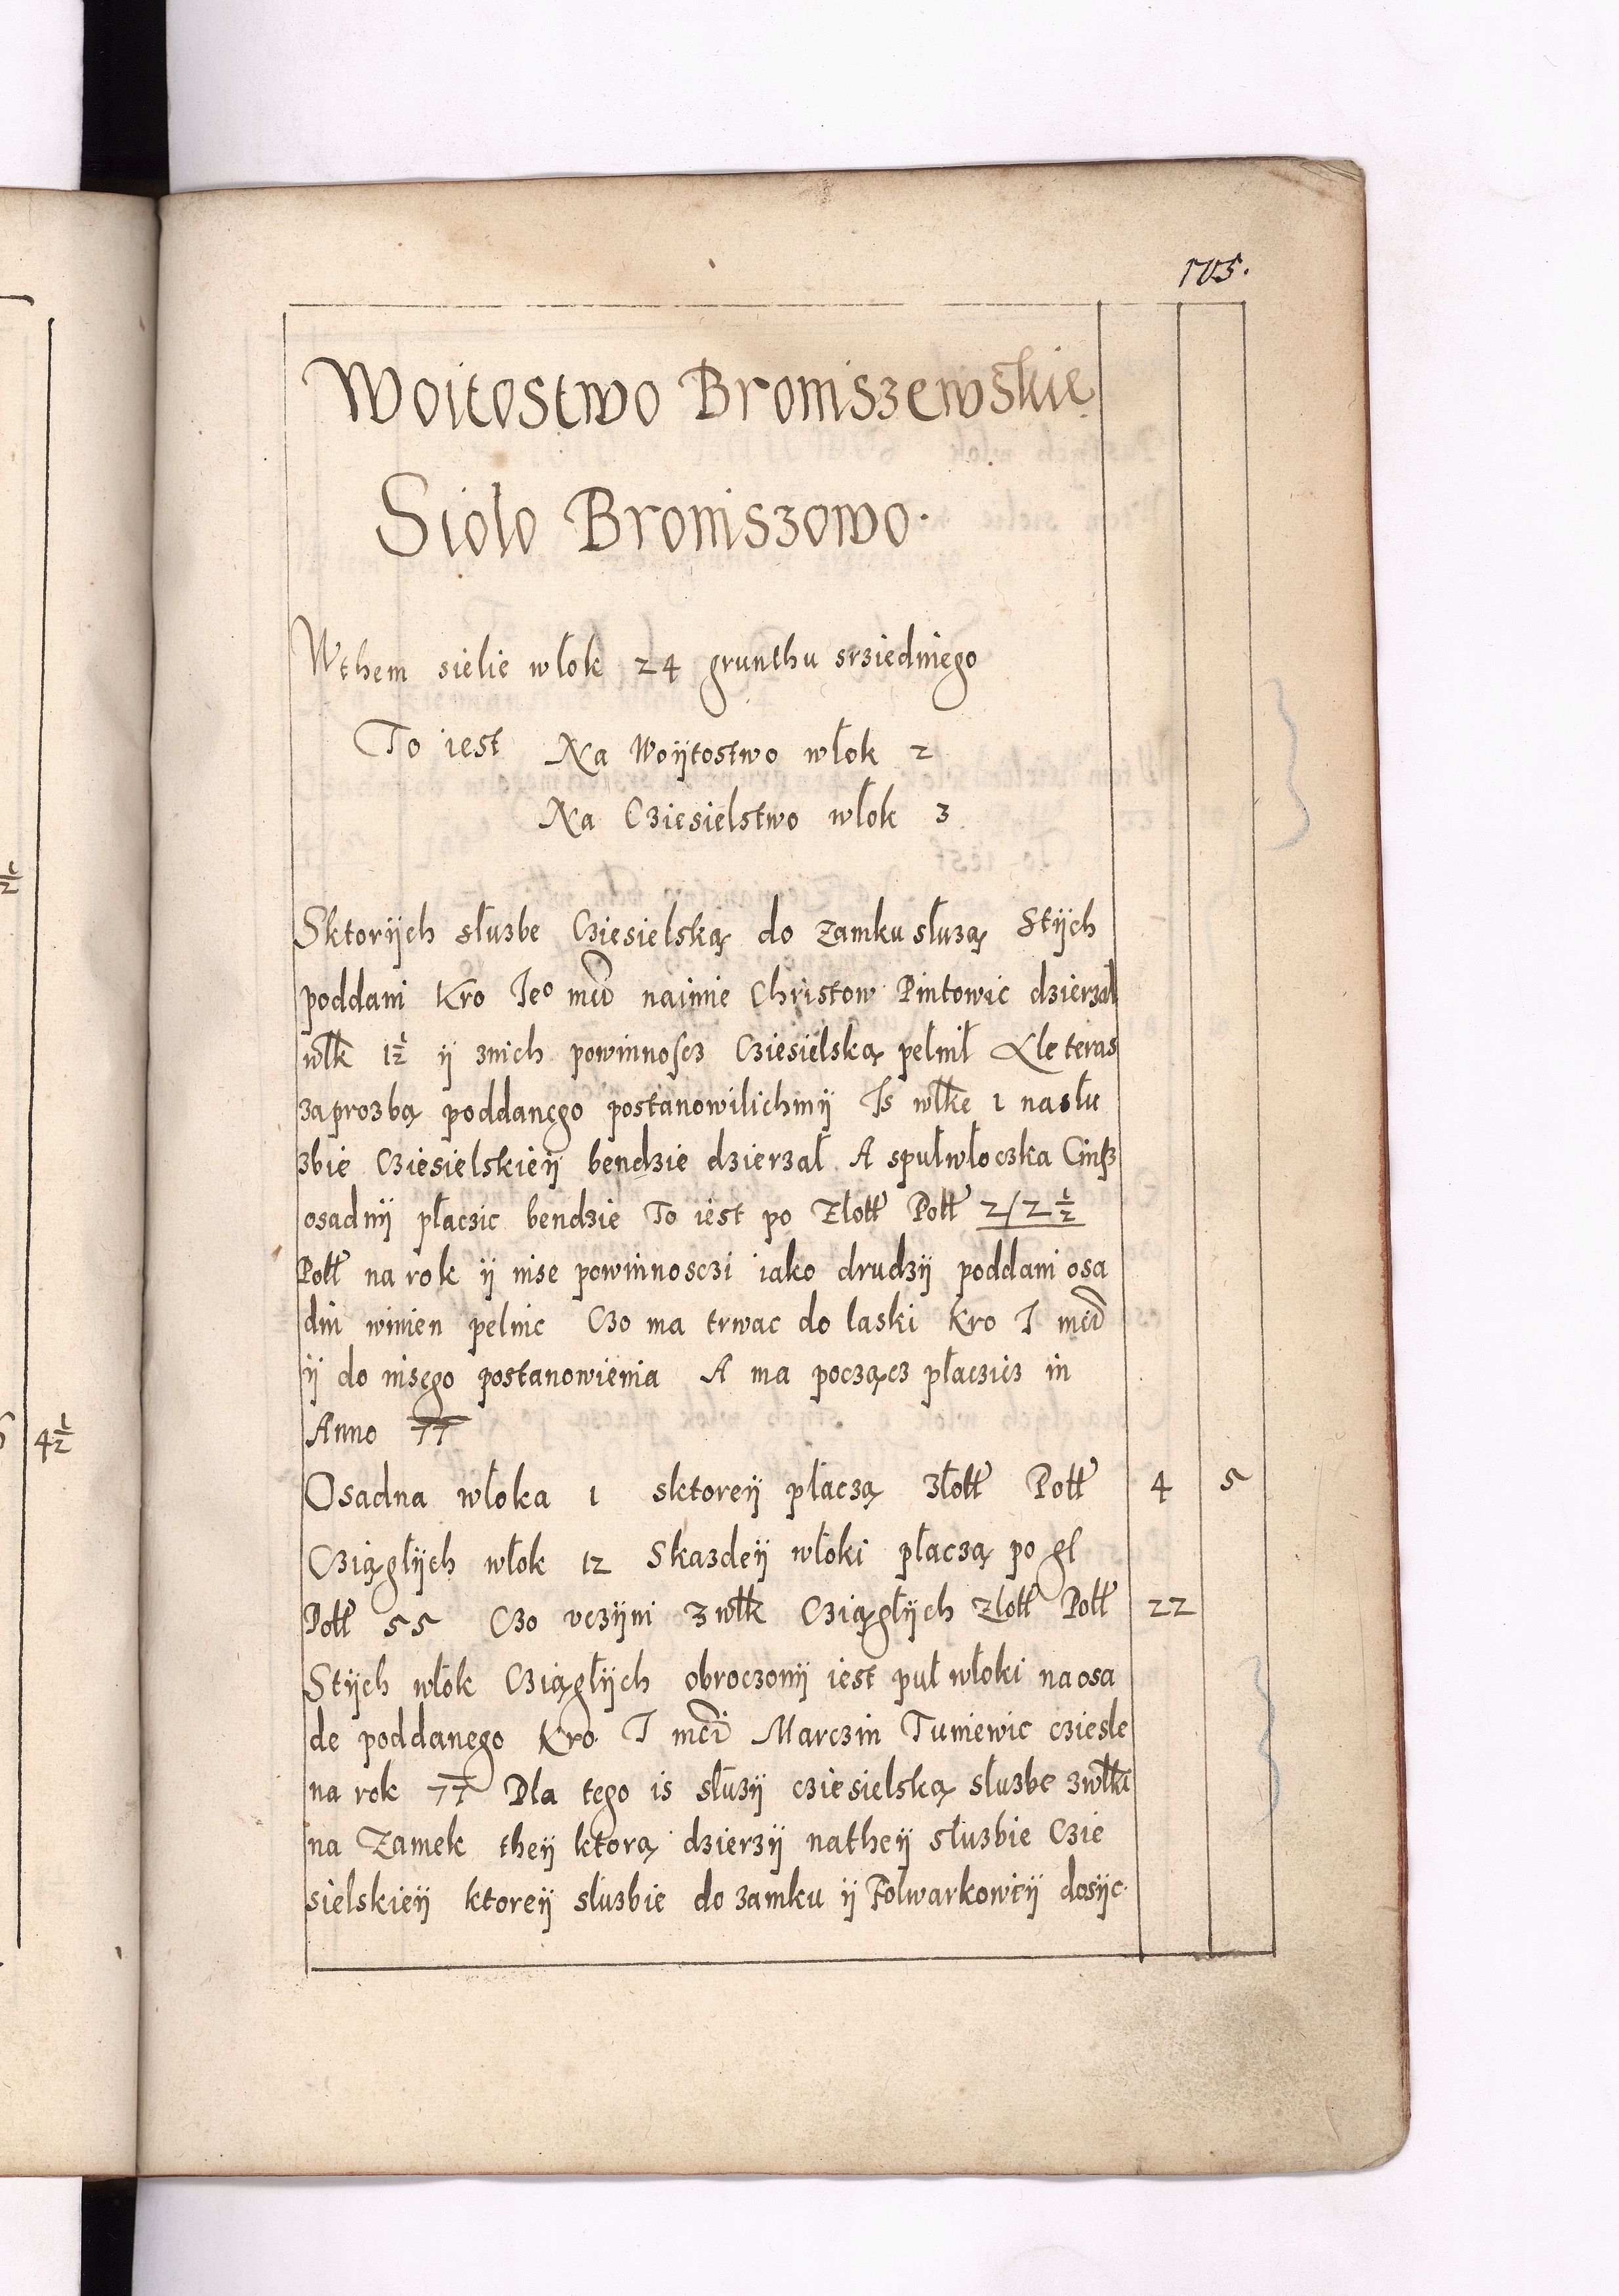 105.
Woitostwo Broniszewskie
Siolo Broniszowo.
Wthem sielie włok 24 grunthu srziedniego
To iest Na Woÿtostwo włok 2
Na Cziesielstwo włok 3
Sktorÿch słuzbe Cziesielską do zamku służą Stÿch
poddani Kro Jeo mci naimie Christow Pintowic dzierzał
włk 1½ ÿ znich powinnoscz Cziesielską pełnił Ale teras
za prozbą poddanego postanowilichmÿ Is włke 1 na słu
zbie Cziesielskieÿ bendzie dzierzał A spułwłoczka Cinsz
osadnÿ płaczic bendzie To iest po Złott Pott 2/2½
Pott na rok ÿ nise powinnosczi iako drudzÿ poddani osa
dni winien pelnic Czo ma trwac do laski Kro J mci
ÿ do nisego postanowienia A ma począcz płaczicz in
Anno 77
Osadna włoka 1 sktoreÿ płaczą złott Pott 4 5
Cziągłÿch włok 12 Skazdeÿ włoki płaczą po gł
Pott 55 Czo vczÿni z włk Cziągłÿch złott Pott 22
Stÿch włok Cziągłÿch obroczonÿ iest puł włoki na osa
de poddanego Kro J mci Marczin Tuniewic cziesle
na rok 77 Dla tego is słuzÿ cziesielską słuzbe zwłki
na Zamek theÿ ktorą dzierzÿ na theÿ słuzbie Czie
sielskieÿ ktoreÿ słuzbie do zamku ÿ Folwarkowiÿ dosÿc
4½